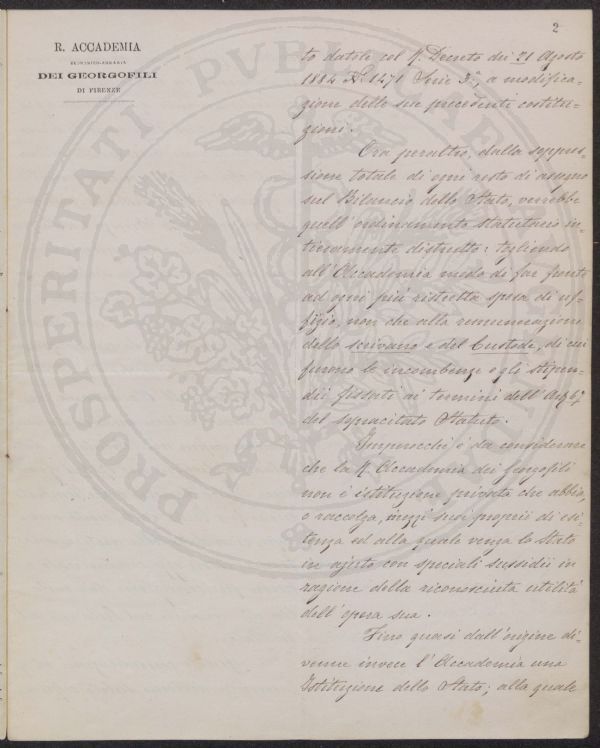 2
R. ACCADEMIA
ECONOMICO-AGRARIA
DEI GEORGOFILI
DI FIRENZE
PROSPERITATI PVBLICAE
to datole col R. Decreto dei 21 Agosto
1884 N.° 1471 Serie 3.ª, a modifica-
zione delle sue precedenti costitu-
zioni.
Ora peraltro, dalla soppres-
sione totale di ogni resto di assegno
sul Bilancio dello Stato, verrebbe
quell'ordinamento statutario in-
tieramente distrutto: togliendo
all'Accademia modo di far fronte
ad ogni più ristretta spesa di uf-
fizio, non che alla remunerazione
dello scrivano e del Custode, di cui
furono le incombenze e gli stipen-
dii fissati ai termini dell'Art. 67
del sopracitato Statuto.
Imperocchè è da considerare
che la R. Accademia dei Georgofili
non è istituzione privata che abbia,
o raccolga, mezzi suoi proprii di esi-
stenza ed alla quale venga lo Stato
in ajuto con speciali sussidii in
ragione della riconosciuta utilità
dell'opera sua.
Fino quasi dall'origine di-
venne invece l'Accademia una
Istituzione dello Stato; alla quale